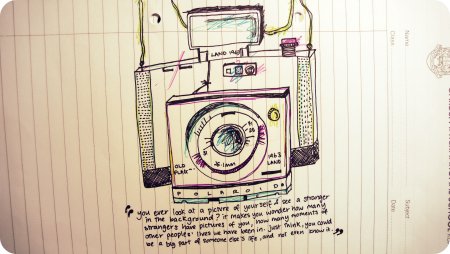 Name
Class
LAND 1963
OLD
FLAK
26.1mm
1963
LAND
POLAROID
Subject
Date
"you ever look at a picture of yourself & see a stranger
in the background? it makes you wonder how many
strangers have pictures of you, how many moments of
other peoples' lives we have been in. just think, you could
be a big part of someone else's life, and not even know it."